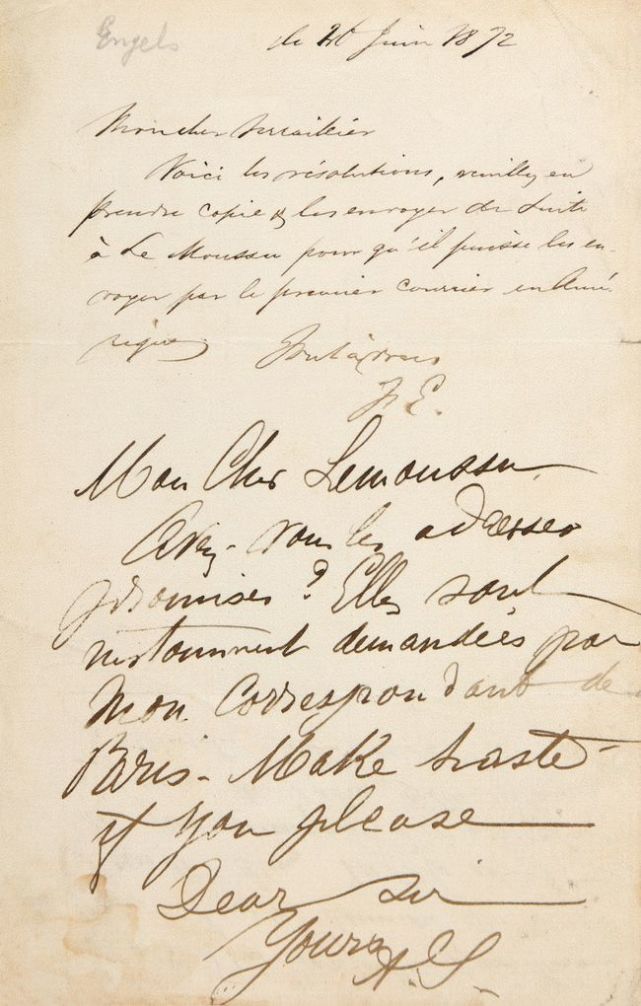 Engels
le 26 Juin 1872
Mon cher Serraillier
Voici les résolutions, veuillez en
prendre copie & les envoyer de suite
à Le Moussu pour qu'il puisse les en
voyer par le premier courrier en Amé
rique
Tout à vous
F. E.
Mon Cher Lemoussu
Avez-vous les adresses
promises ? Elles sont
instamment demandées par
mon Correspondant de
Paris - Make haste
if you please
Dear sir
Yours A. S.